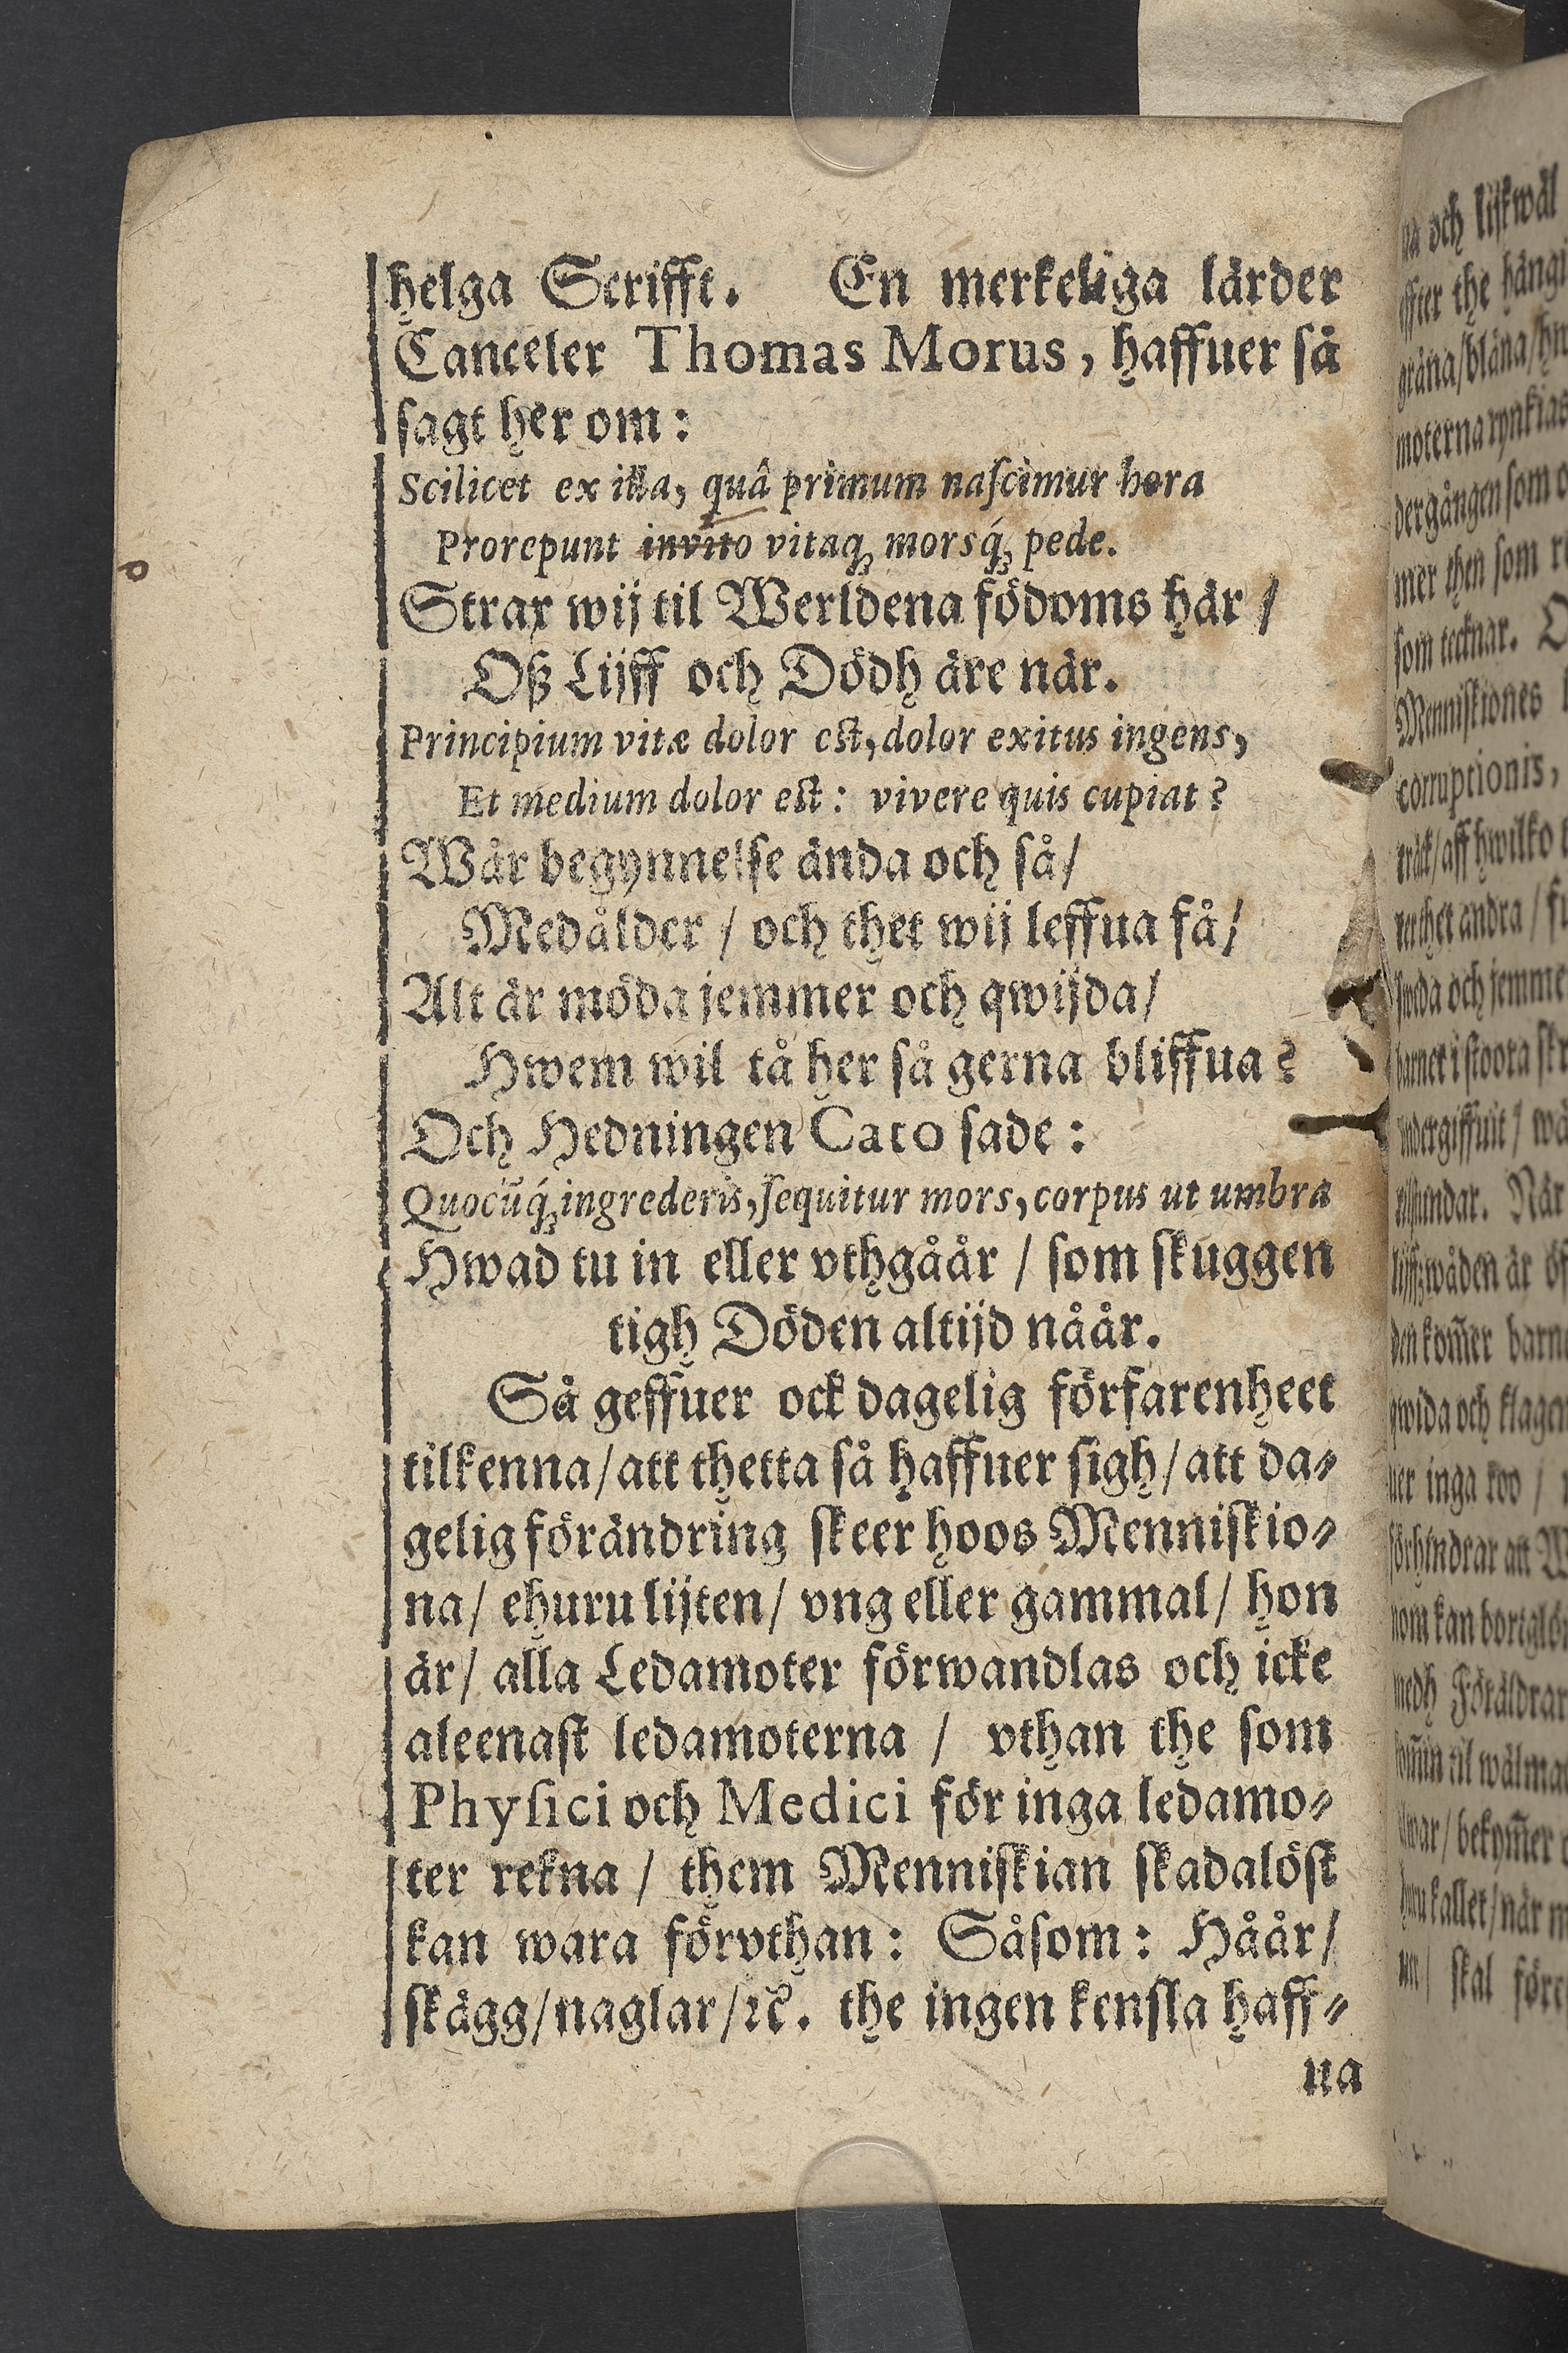 helga Scrifft. En merkeliga lärder
Canceler Thomas Morus, haffuer så
sagt her om:
Scilicet ex illa, quâ primum naſcimur hora
Prorepunt invito vitaq́ꝫ morsq́ꝫ pede.
Strax wij til Werldena födoms här /
Oß Lijff och Dödh äre när.
Principium vitæ dolor est, dolor exitus ingens,
Et medium dolor est: vivere quis cupiat?
Wår begynnelse ända och så/
Medålder / och thet wij leffua få/
Alt är möda jemmer och qwijda/
Hwem wil tå her så gerna bliffua?
Och Hedningen Cato sade:
Quocūq́ꝫ ingrederis, ſequitur mors, corpus ut umbra
Hwad tu in eller vthgåår / som skuggen
tigh Döden altijd nåår.
Så geffuer ock dagelig förfarenheet
tilkenna/att thetta så haffuer sigh/att da⸗
gelig förändring skeer hoos Menniskio⸗
na/ ehuru lijten/ vng eller gammal/ hon
är/ alla Ledamoter förwandlas och icke
aleenast ledamoterna / vthan the som
Phyſici och Medici för inga ledamo⸗
ter rekna / them Menniskian skadalöst
kan wara förvthan: Såsom: Håår/
skägg/naglar/ꝛc. the ingen kensla haff⸗
ua
na och likwäl
effter the hängi
gräna/bläna/
moterna rynkias
dergången som
mer then som
som tecknar.
Menniskiones
corruptionis,
aff hwilko
thet andra /
och jemme
barnet i stoora
vndergiffuit /
När
wåden är
den kom̃er barn
qwida och klagen
inga roo /
förhindrar att
nom kan bortglö
medh Föräldrar
til wälma
bekym̃er
kallet/när
skal före